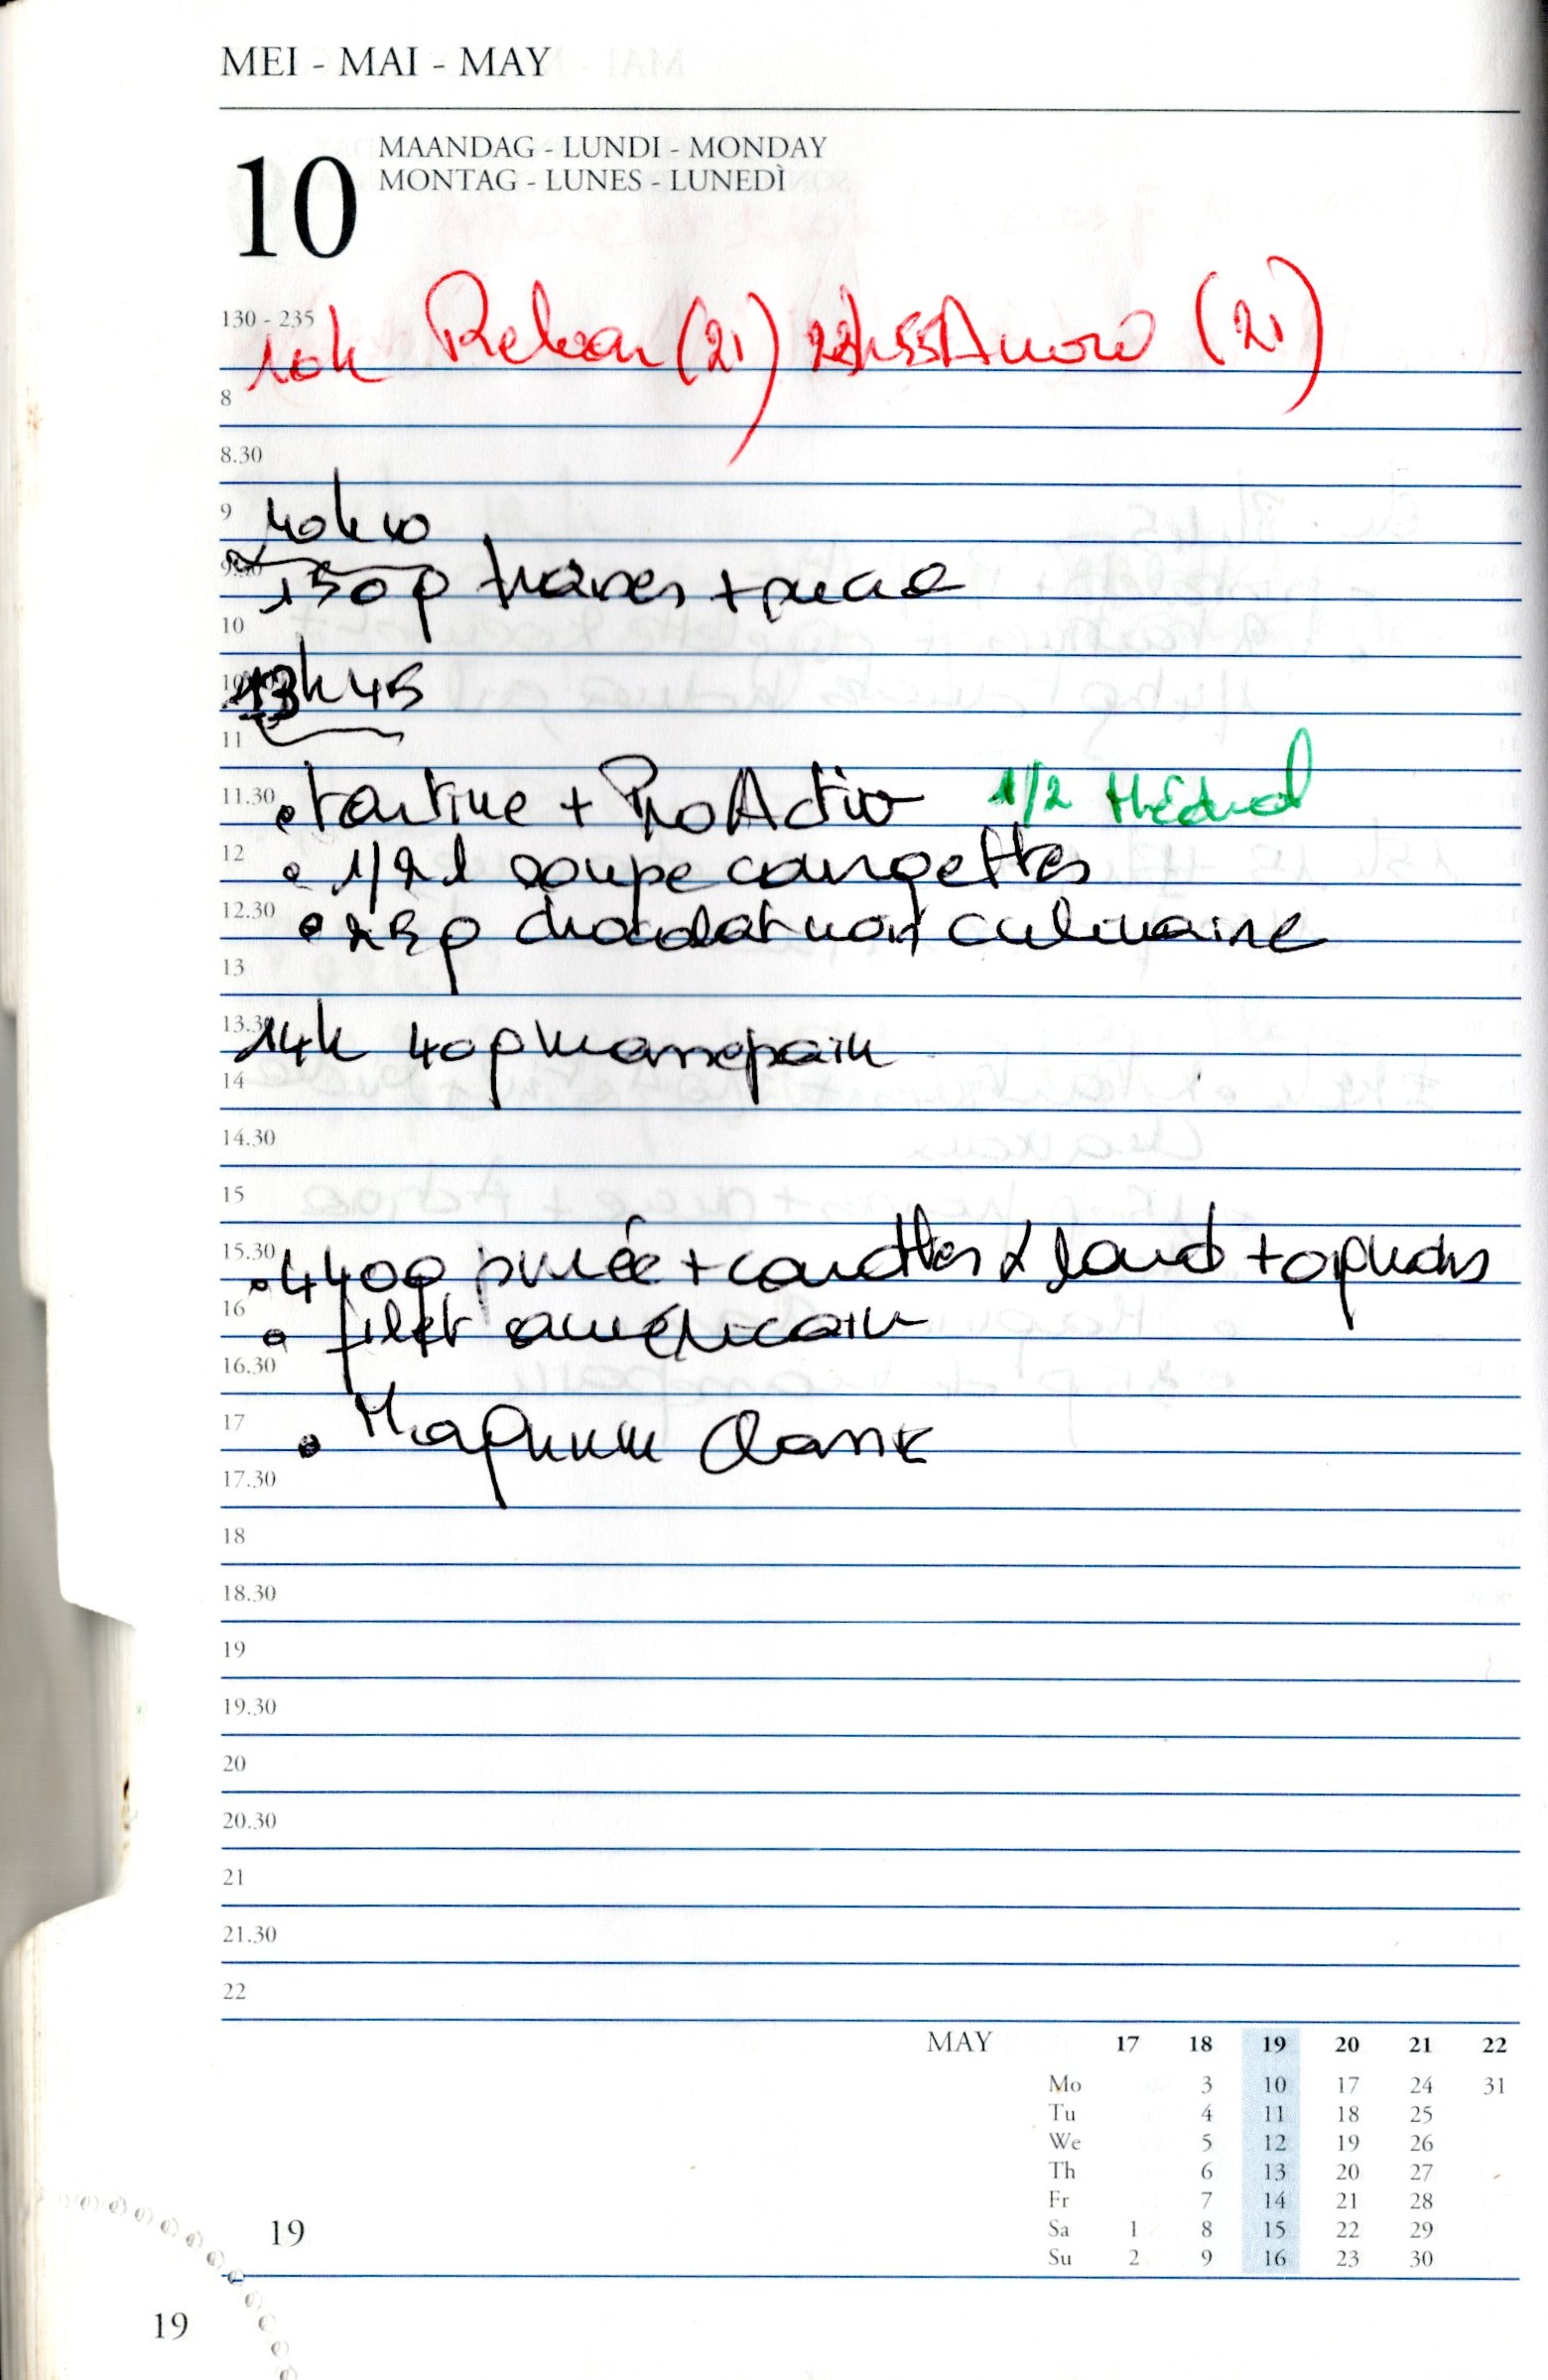 MEI - MAI - MAY
10
MAANDAG - LUNDI - MONDAY
MONTAG - LUNES - LUNEDÌ
130 - 235
10h (21) (21)
8
8.30
9
10h10
9.30
150g fraises + sucre
10
13h45
11
11.30
tartine + ProActiv 1/2 Médrol
12
1/2 l soupe courgettes
12.30
25g chocolat noir culinaire
13
13.30
14h 40g massepain
14
14.30
15
15.30
440g purée + carottes & lard + oignons
16
filet américain
16.30
17
Magnum Classic
17.30
18
18.30
19
19.30
20
20.30
21
21.30
22
MAY 17 18 19 20 21 22
Mo 3 10 17 24 31
Tu 4 11 18 25
We 5 12 19 26
Th 6 13 20 27
Fr 7 14 21 28
Sa 1 8 15 22 29
Su 2 9 16 23 30
19
19